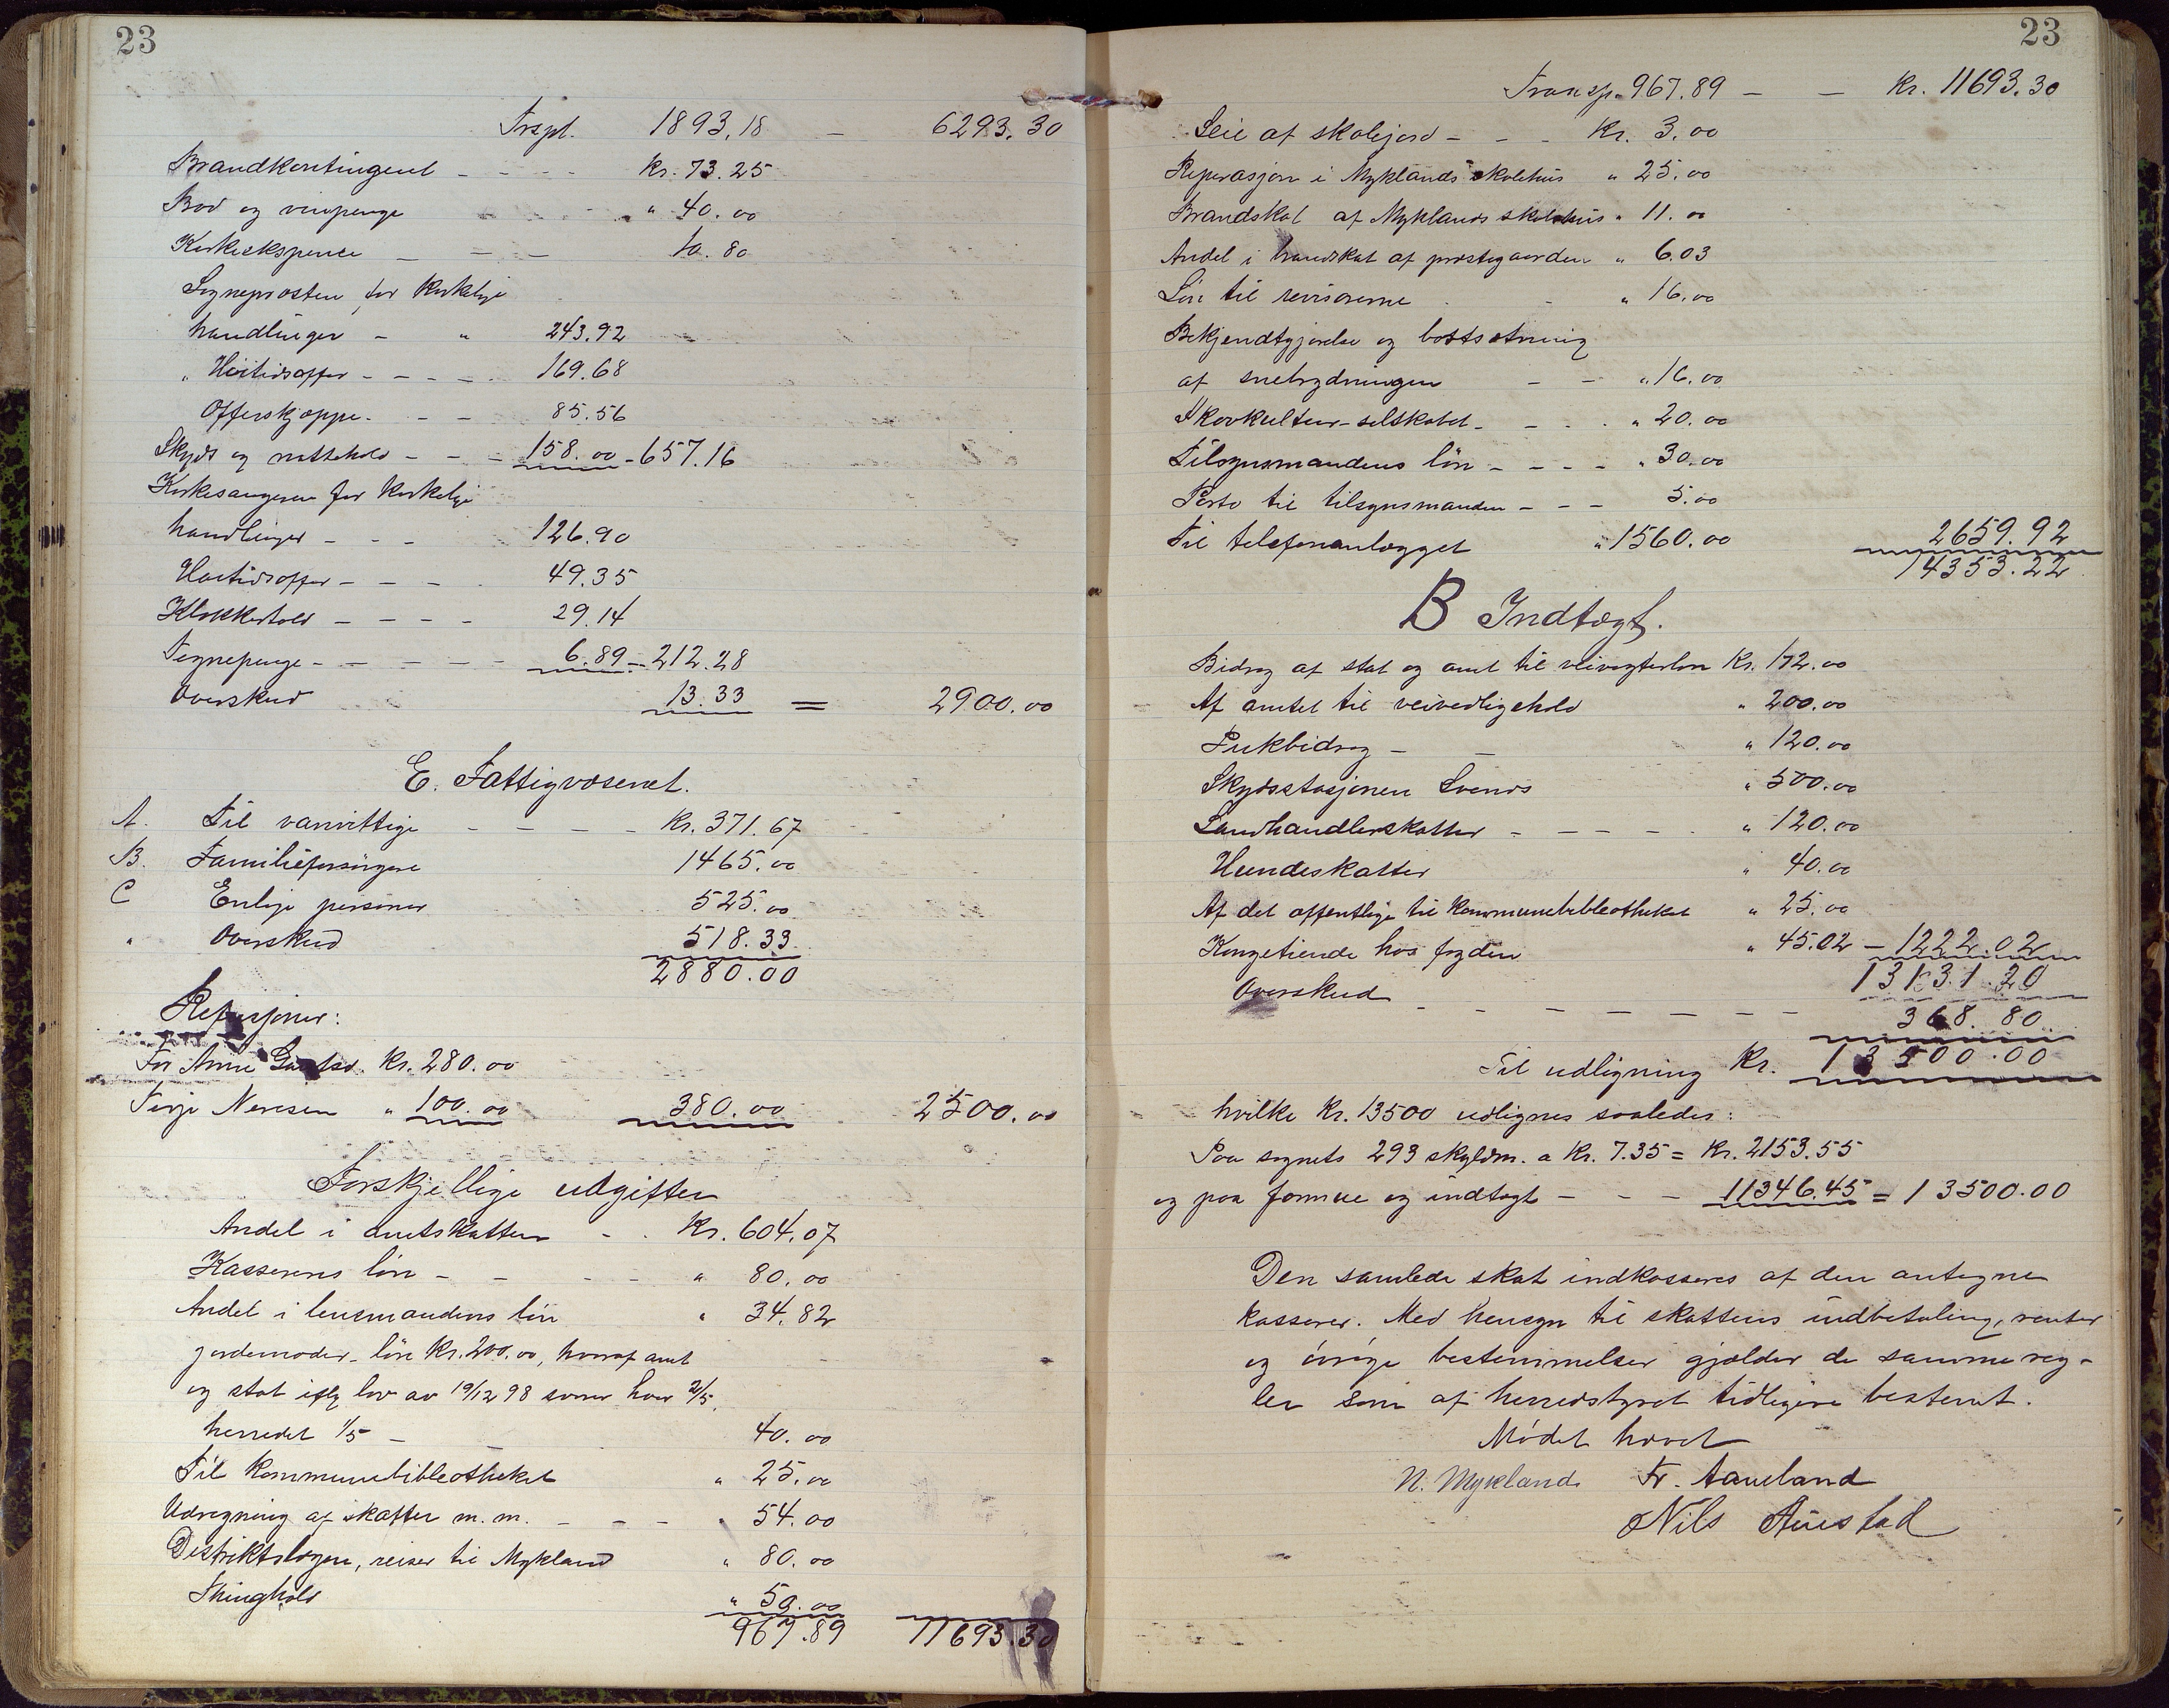 23
Trspt. 1893.18 – 6293.30
Brandkontingent - - - - Kr. 73.25
Brød og vinpenge - - - " 40.00
Kirkeekspence - - - 10.80
Sogneprosten for Kirkelige
handlinger - " 243.92
" Høitidsoffer - - - - 169.68
Offerskjæppe - - - 85.56
Skyds og nattehold - - - 158.00 - 657.16
Kirkesangeren for Kirkelige
handlinger - - - 126.90
Høitidsoffer - - - - 49.35
Klokkertold - - - - 29.14
Tegnepenge - - - - - 6.89 - 212.28
Overskud 13.33 = 2900.00
E. Fattigvæsenet.
A. Til vanvittige - - - - Kr. 371.67
B. Familieforsörgere 1465.00
C Enlige personer 525.00
" Overskud 518.33
2880.00
Refusjoner:
For Anne Kr. 280.00
Terje Neresen " 100.00 380.00 2500.00
Forskjellige udgifter
Andel i amtskatten - - Kr. 604.07
Kasserens lön - - - - " 80.00
Andel i lensmandens lön " 34.82
jordemoder-lön Kr. 200.00, hvoraf amt
og stat iflg lov av 19/12 98 svarer hver 2/5,
herredet 1/5 - 40.00
Til Kommunebibliotheket " 25.00
Udregning af skatter m.m. - - - " 54.00
Distriktslægen, reiser til Mykland " 80.00
Thinghold " 50.00
967.89 11693.30
23
Transp. 967.89 – – Kr. 11693.30
Leie af skolejord - - - Kr. 3.00
Reperasjon i Myklands skolehus " 25.00
Brandskat af Myklands skolehus " 11.00
Andel i brandskat af prestegaarden " 6.03
Lön til revisorerne - " 16.00
Bekjendtgjørelse og bortsætning
af snebrydningen - - " 16.00
Skovkultur-selskabet - - - " 20.00
Tilsynsmandens lön - - - - " 30.00
Porto til tilsynsmanden - - - 5.00
Til telefonanlægget " 1560.00 2659.92
14353.22
B Indtægt.
Bidrag af stat og amt til veivogterløn Kr. 172.00
Af amtet til veivedligehold " 200.00
Pukbidrag - - " 120.00
Skydsstasjonen Svends " 500.00
Landhandlerskatter - - - - " 120.00
Hundeskatter " 40.00
Af det offentlige til kommunebibliotheket " 25.00
Kongetiende hos fogden " 45.02 - 1222.02
13131.20
Overskud - - - - - - - 368.80
Til udligning Kr. 13500.00
hvilke Kr. 13500 udlignes saaledes:
Paa sognets 293 skyldm. a Kr. 7.35 = Kr. 2153.55
og paa formue og indtægt - - - 11346.45 = 13500.00
Den samlede skat indkasseres af den antagne
kasserer. Med hensyn til skattens indbetaling, renter
og övrige bestemmelser gjælder de samme reg-
ler som af herredstyret tidligere bestemt.
Mödet hævet
N. Mykland Fr. Aamland
Nils Austad